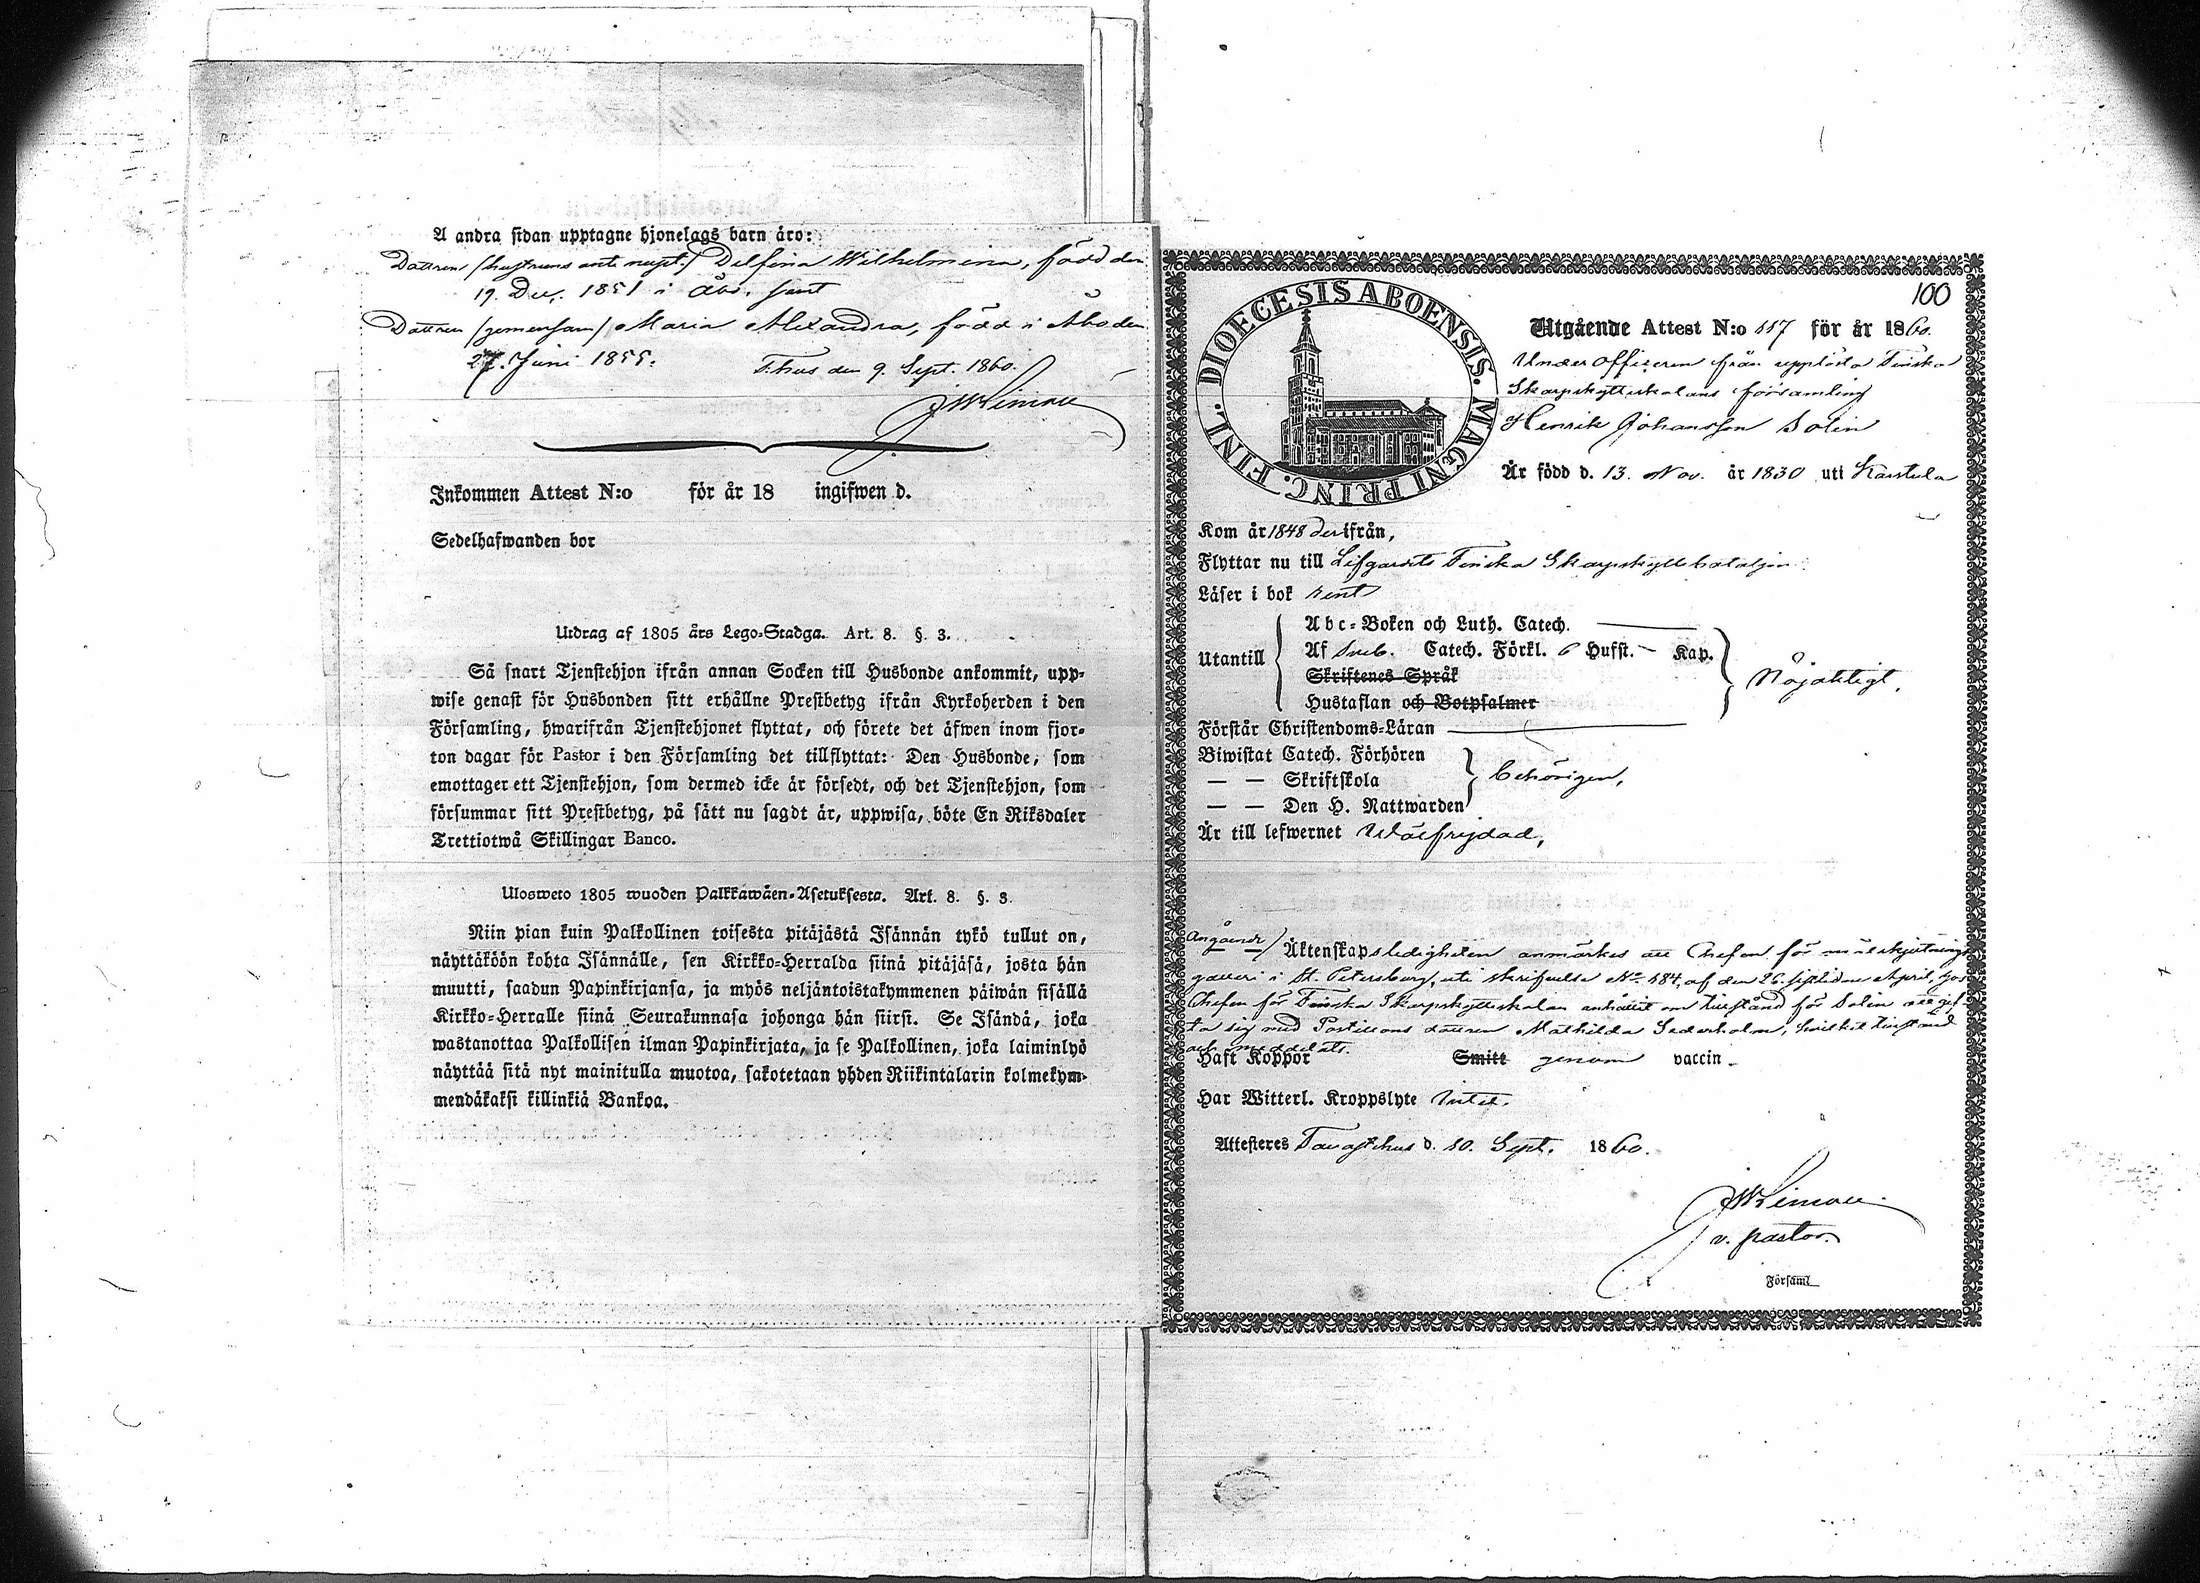 A andra sidan upptagne hjonelags barn äro:
Dottren (hustruns ante nupt.) Delfina Wilhelmina, född den
19. Dec. 1851 i Åbo, samt
Dottren (gemensam) Maria Alexandra, född i Åbo den
27. Juni 1855.
T.hus den 9. Sept. 1860.
Inkommen Attest N:o för år 18 ingifwen d.
Sedelhafwanden bor
Utdrag af 1805 års Lego-Stadga. Art. 8. §. 3.
Så snart Tjenstehjon ifrån annan Socken till Husbonde ankommit, upp-
wise genast för Husbonden sitt erhållne Prestbetyg ifrån Kyrkoherden i den
Församling, hwarifrån Tjenstehjonet flyttat, och förete det äfwen inom fjor-
ton dagar för Pastor i den Församling det tillflyttat: Den Husbonde, som
emottager ett Tjenstehjon, som dermed icke är försedt, och det Tjenstehjon, som
försummar sitt Prestbetyg, på sätt nu sagdt är, uppwisa, böte En Riksdaler
Trettiotwå Skillingar Banco.
Ulosweto 1805 wuoden Palkkawäen-Asetuksesta. Art. 8. §. 3.
Niin pian kuin Palkollinen toisesta pitäjästä Isännän tykö tullut on,
näyttäköön kohta Isännälle, sen Kirkko-Herralda siinä pitäjäsä, josta hän
muutti, saadun Papinkirjansa, ja myös neljäntoistakymmenen päiwän sisällä
Kirkko-Herralle siinä Seurakunnasa johonga hän siirsi. Se Isändä, joka
wastanottaa Palkollisen ilman Papinkirjata, ja se Palkollinen, joka laiminlyö
näyttää sitä nyt mainitulla muotoa, sakotetaan yhden Riikintalarin kolmekym-
mendäkaksi killinkiä Bankoa.
100
DIOECESIS ABOENSIS. MAGNI PRINC. FINL.
Utgående Attest N:o 117 för år 1860.
Under officeren från upplösta Finska
Skarpskytteskolans församling
Henrik Johansson Solin
Är född d. 13. Nov. år 1830 uti Karstula
Kom år 1848 derifrån,
Flyttar nu till Lifgardets Finska Skarpskyttebataljon
Läser i bok rent
Utantill
Abc-Boken och Luth. Catech.
Af Catech. Förkl. 6 Hufst. Kap.
Skriftenes Språk
Hustaflan och Botpsalmer
Nöjaktigt.
Förstår Christendoms-Läran
Biwistat Catech. Förhören
— — Skriftskola
— — Den H. Nattwarden
behörigen,
Är till lefwernet Wälfrejdad,
Angående Äktenskapsledigheten anmärkes att Chefen för
i St. Petersburg, uti skrifvelse No 184, af den 26. sistlidne April, hos
Chefen för Finska Skarpskytteskolan anhållit om tillstånd för Solin att gif-
ta sig med dottren Mathilda Sederholm, hvilket tillstånd
ock meddelts.
Haft Koppor Smitt genom vaccin
Har Witterl. Kroppslyte intet.
Attesteres Tavastehus d. 10. Sept. 1860.
v. pastor
Församl